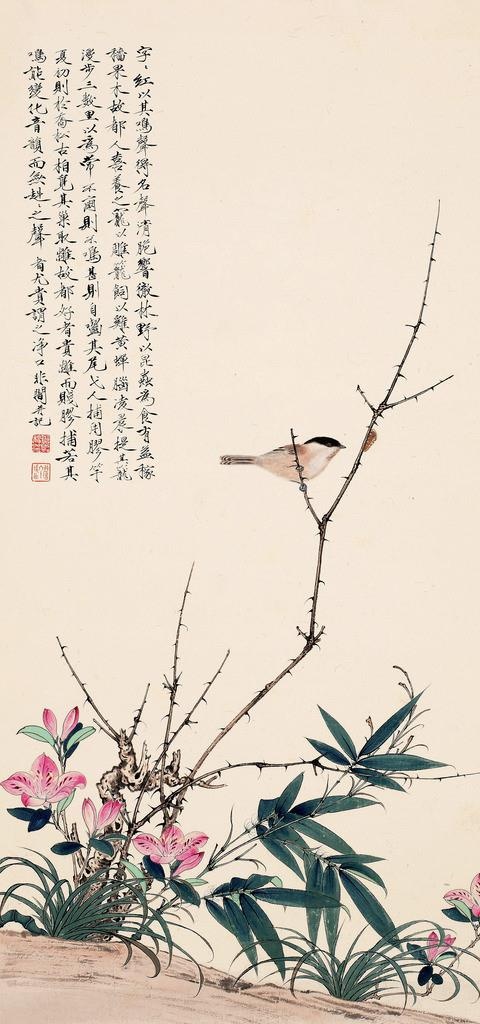 字々紅以其鳴聲得名聲清脆響徹林野以昆蟲為食有益稼
穡果木故都人喜養之籠以雕籠飼以雞黄蟬腦凌晨提其籠
漫步三數里以為常不爾則不鳴甚則自嚙其尾弋人捕用膠竿
夏初則於喬松古柏覓其巢取雛故都好者貴雛而賤膠捕若其
鳴能變化音韻而無趕々之聲者尤貴謂之净口非闇并記